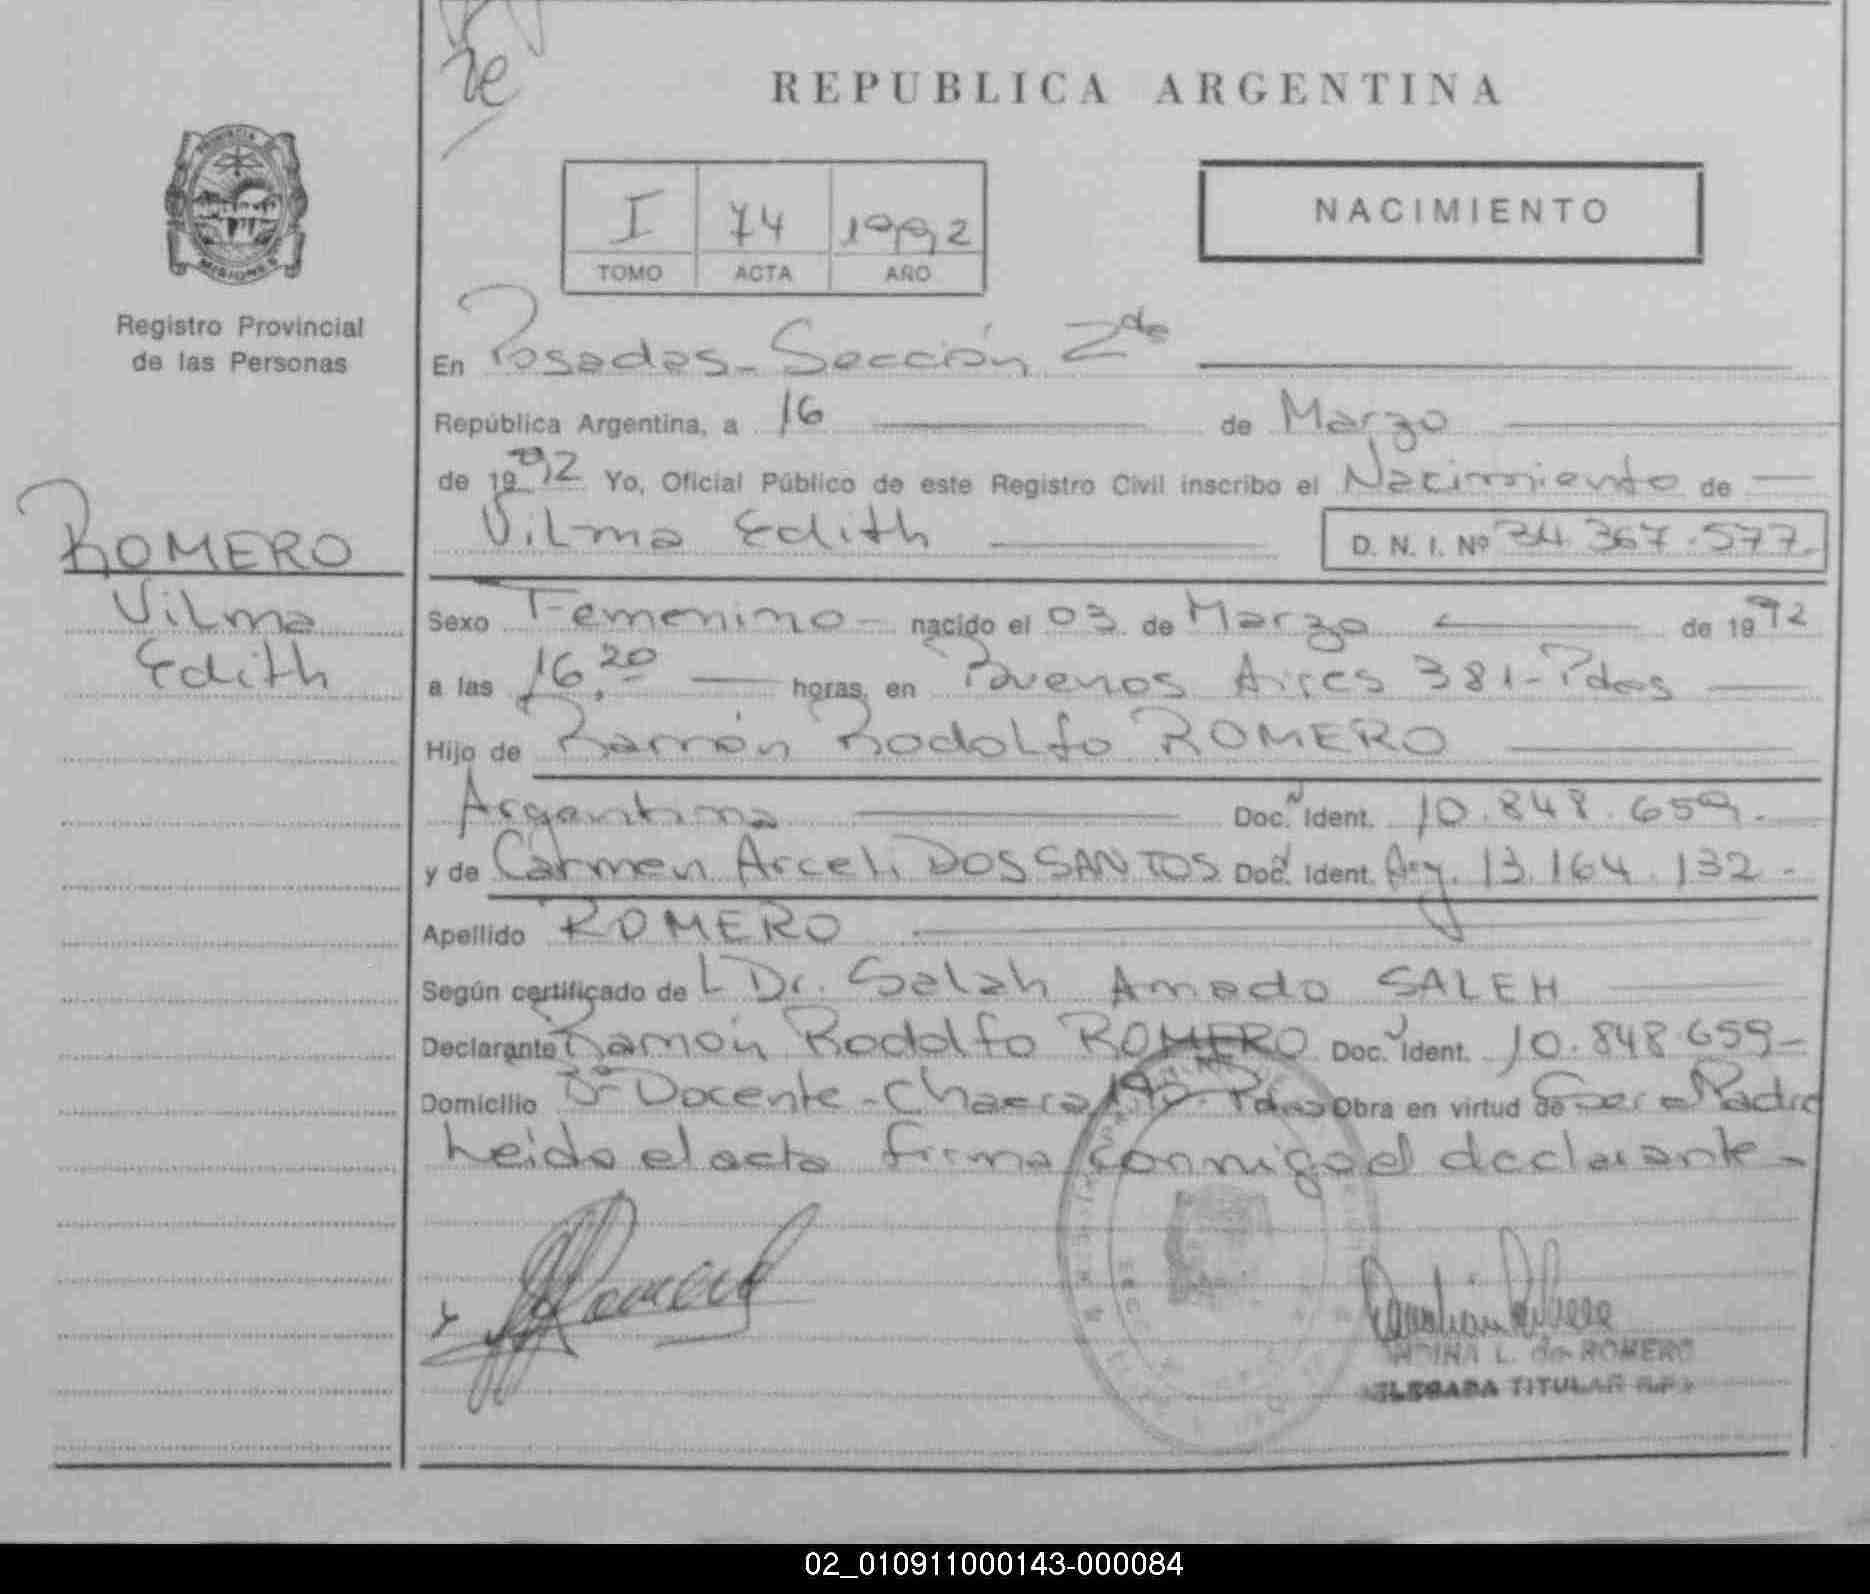 REPUBLICA ARGENTINA
PROVINCIA DE
MISIONES
Registro Provincial
de las Personas
I 74 1992
TOMO ACTA AÑO
NACIMIENTO
En Posadas - Sección 2da
República Argentina, a 16 de Marzo
de 1992 Yo, Oficial Público de este Registro Civil inscribo el Nacimiento de
Vilma Edith D. N. I. Nº 34.367.577.
ROMERO
Vilma
Edith
Sexo Femenino - nacido el 03 de Marzo de 1992
a las 16,20 horas, en Buenos Aires 381 - Pdas
Hijo de Ramón Rodolfo ROMERO
Argentina Doc. Ident. 10.848.659.
y de Carmen Arceli DOS SANTOS Doc. Ident. Arg. 13.164.132 -
Apellido ROMERO
Según certificado de L Dr. Salah Amado SALEH
Declarante Ramón Rodolfo ROMERO Doc. Ident. 10.848.659 -
Domicilio Bº Docente - Chacra Pdas Obra en virtud de Ser el Padre
Leida el acta firma conmigo el declarante -
L. de ROMERO
TITULAR R.P.
02_010911000143-000084